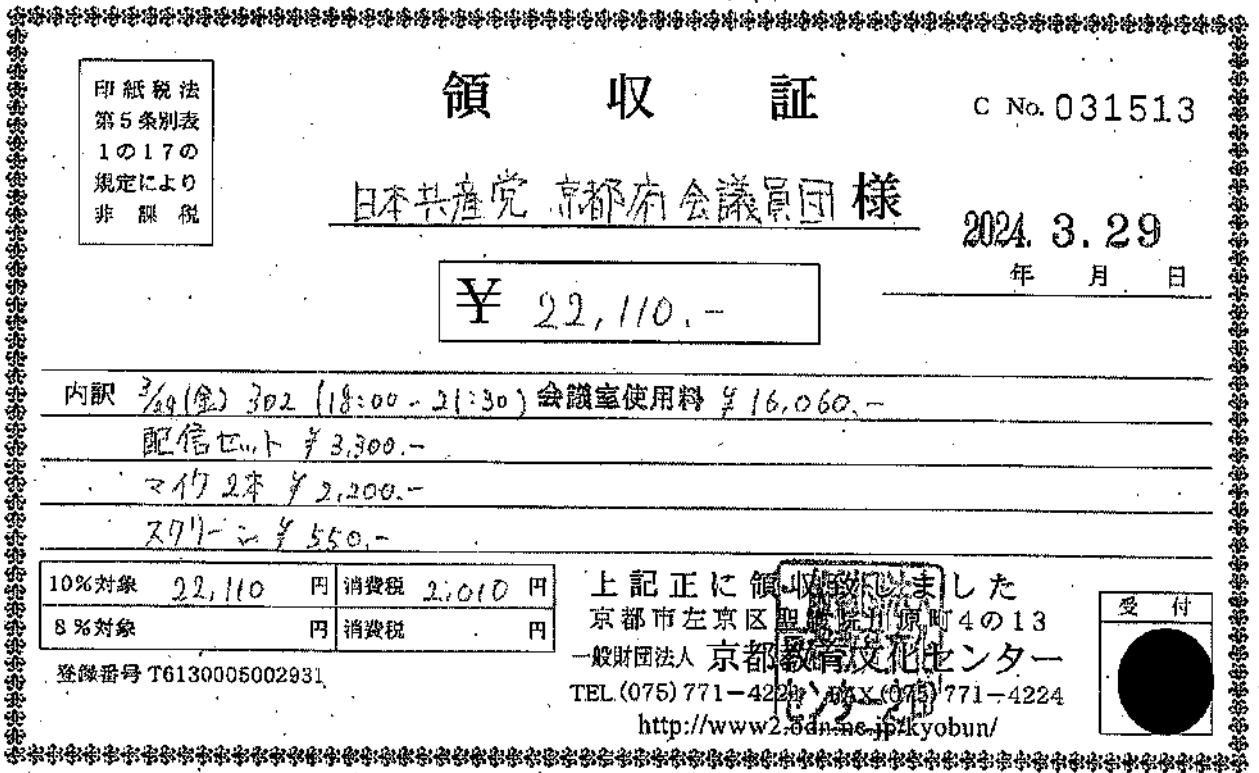 印紙税法
第5条別表
1の17の
規定により
非課税
領収証
C No. 031513
日本共産党 京都府会議員団 様
2024. 3. 29
年 月 日
¥ 22,110.-
内訳 3/29(金) 302 (18:00-21:30) 会議室使用料 ¥16,060.-
配信セット ¥3,300.-
マイク2本 ¥2,200.-
スクリーン ¥550.-
10%対象 22,110 円 消費税 2,010 円
8%対象 円 消費税 円
登録番号 T6130005002931
上記正に領収致しました
京都市左京区聖護院川原町4の13
一般財団法人 京都教育文化センター
TEL.(075)771-4221 FAX.(075)771-4224
http://www2.odn.ne.jp/kyobun/
受付